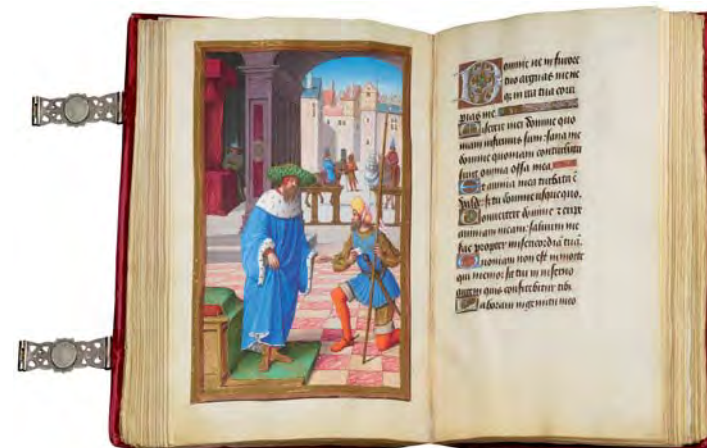 Domine ne in furore
tuo arguas me ne
q; in ira tua corri
pias me.
Miserere mei domine quo
niam infirmus sum: sana me
domine quoniam conturbata
sunt omnia ossa mea.
Et anima mea turbata ē
valde: sed tu domine usquequo.
Convertere domine et eripe
animam meam: salvum me
fac propter misericordiā tuā.
Quoniam non est in morte
qui memor sit tui: in inferno
autem quis confitebitur tibi.
Laboravi in gemitu meo